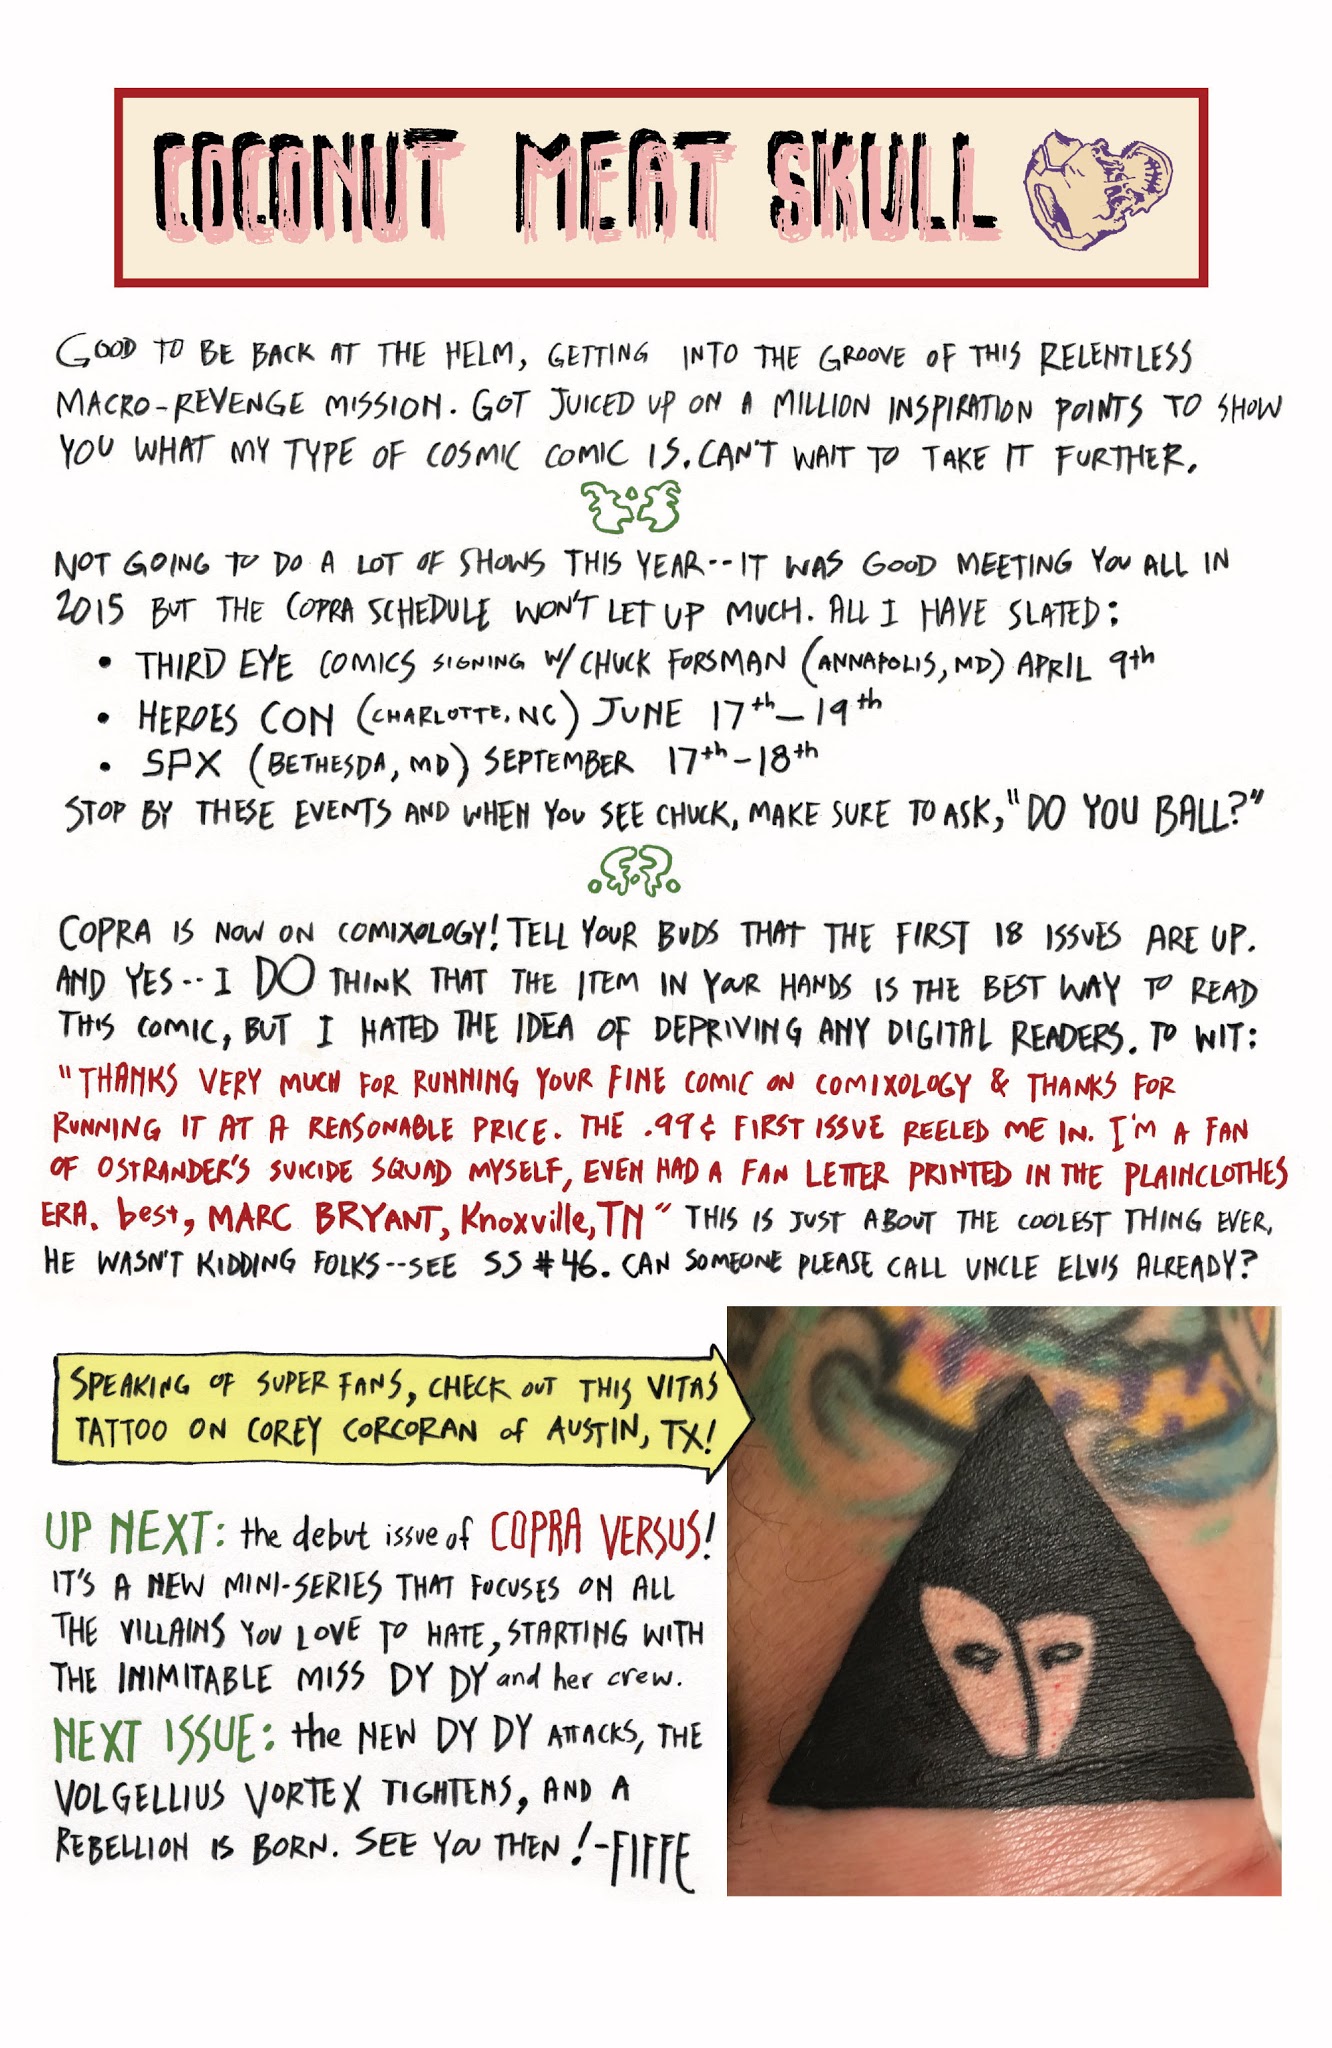 COCONUT MEAT SKULL
GOOD TO BE BACK AT THE HELM, GETTING INTO THE GROOVE OF THIS RELENTLESS
MACRO-REVENGE MISSION. GOT JUICED UP ON A MILLION INSPIRATION POINTS TO SHOW
YOU WHAT MY TYPE OF COSMIC COMIC IS. CAN'T WAIT TO TAKE IT FURTHER.
NOT GOING TO DO A LOT OF SHOWS THIS YEAR--IT WAS GOOD MEETING YOU ALL IN
2015 BUT THE COPRA SCHEDULE WON'T LET UP MUCH. ALL I HAVE SLATED:
• THIRD EYE COMICS SIGNING W/ CHUCK FORSMAN (ANNAPOLIS, MD) APRIL 9th
• HEROES CON (CHARLOTTE, NC) JUNE 17th-19th
• SPX (BETHESDA, MD) SEPTEMBER 17th-18th
STOP BY THESE EVENTS AND WHEN YOU SEE CHUCK, MAKE SURE TO ASK, "DO YOU BALL?"
COPRA IS NOW ON COMIXOLOGY! TELL YOUR BUDS THAT THE FIRST 18 ISSUES ARE UP.
AND YES-- I DO THINK THAT THE ITEM IN YOUR HANDS IS THE BEST WAY TO READ
THIS COMIC, BUT I HATED THE IDEA OF DEPRIVING ANY DIGITAL READERS. TO WIT:
"THANKS VERY MUCH FOR RUNNING YOUR FINE COMIC ON COMIXOLOGY & THANKS FOR
RUNNING IT AT A REASONABLE PRICE. THE .99¢ FIRST ISSUE REELED ME IN. I'M A FAN
OF OSTRANDER'S SUICIDE SQUAD MYSELF, EVEN HAD A FAN LETTER PRINTED IN THE PLAINCLOTHES
ERA. best, MARC BRYANT, Knoxville, TN" THIS IS JUST ABOUT THE COOLEST THING EVER,
HE WASN'T KIDDING FOLKS--SEE SS #46. CAN SOMEONE PLEASE CALL UNCLE ELVIS ALREADY?
SPEAKING OF SUPER FANS, CHECK OUT THIS VITAS
TATTOO ON COREY CORCORAN of AUSTIN, TX!
UP NEXT: the debut issue of COPRA VERSUS!
IT'S A NEW MINI-SERIES THAT FOCUSES ON ALL
THE VILLAINS YOU LOVE TO HATE, STARTING WITH
THE INIMITABLE MISS DY DY and her crew.
NEXT ISSUE: the NEW DY DY ATTACKS, THE
VOLGELLIUS VORTEX TIGHTENS, AND A
REBELLION IS BORN. SEE YOU THEN! -FIFFE